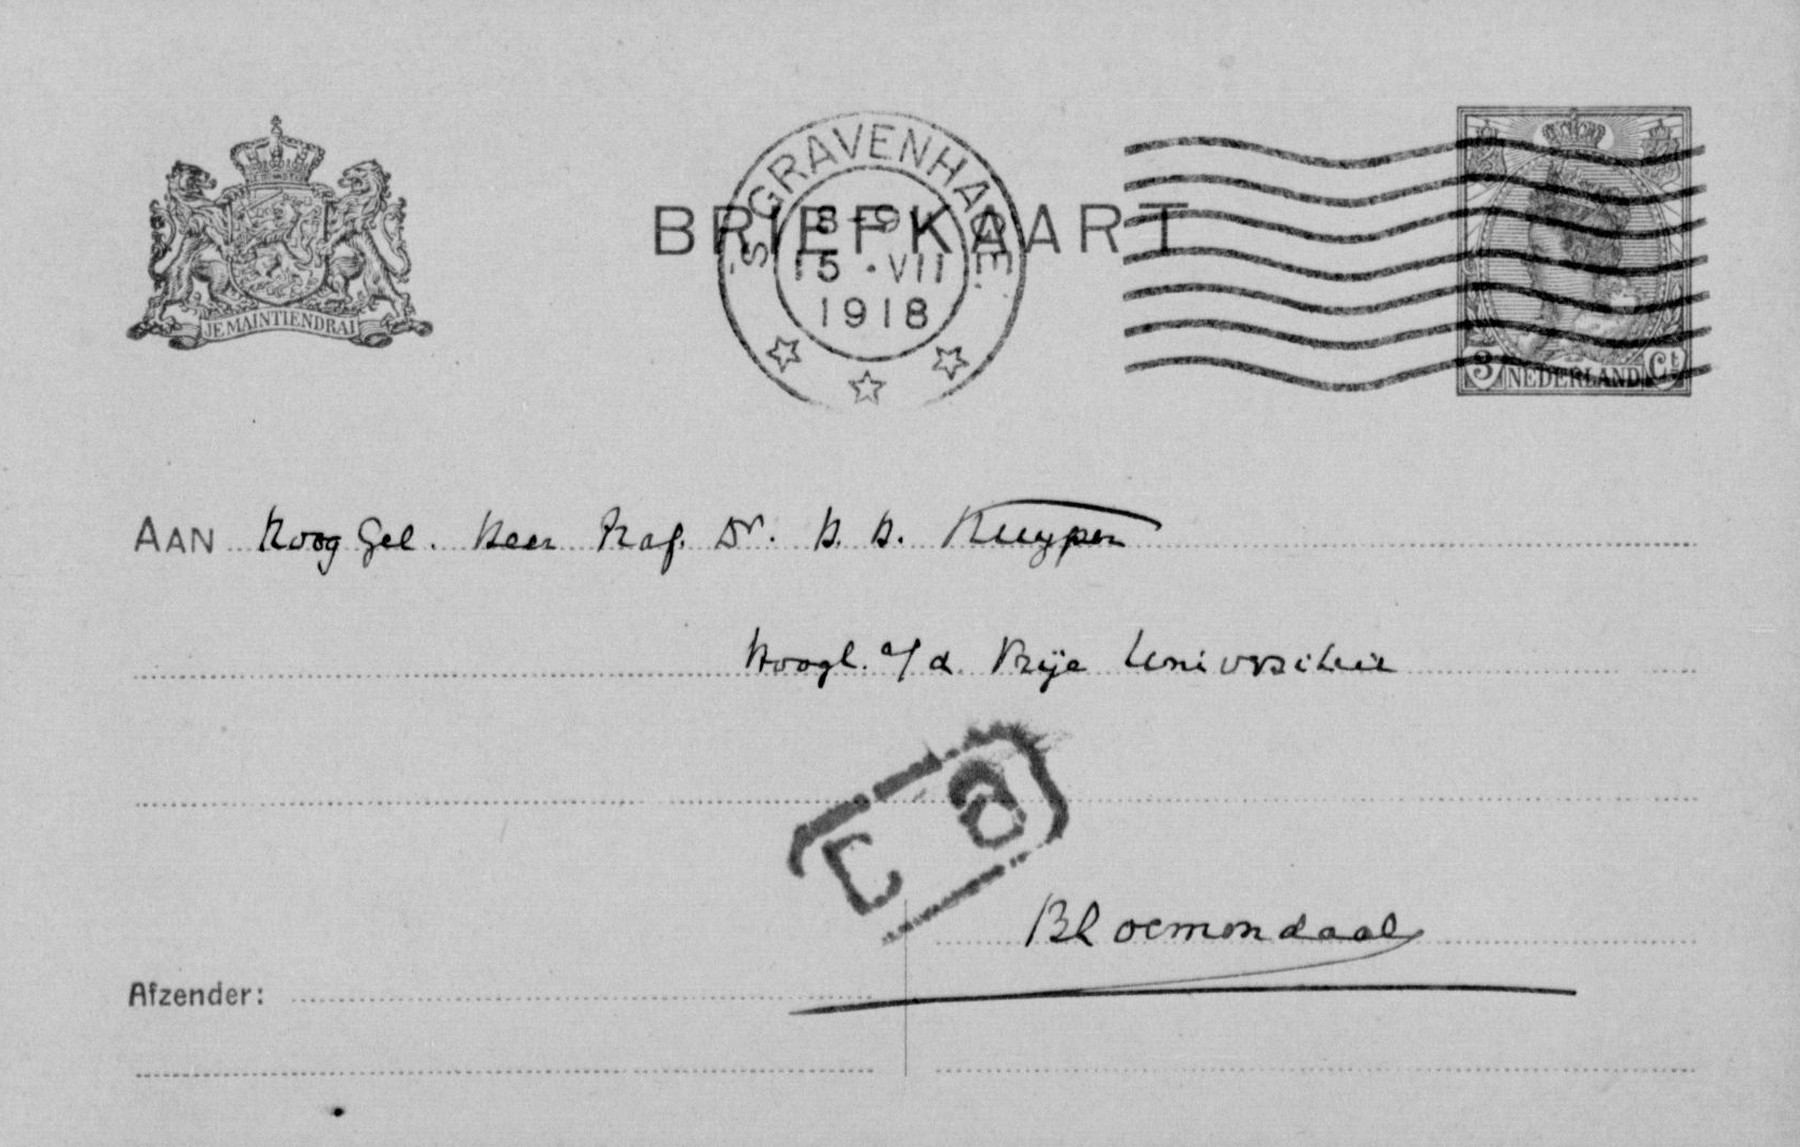 JE MAINTIENDRAI
BRIEFKAART
'S GRAVENHAGE
8-9
15 · VII
1918
3 NEDERLAND Ct
AAN Hoog Gel. Heer Prof. Dr. H. H. Kuyper
Hoogl. a/d Vrije Universiteit
C a
Bloemendaal
Afzender: